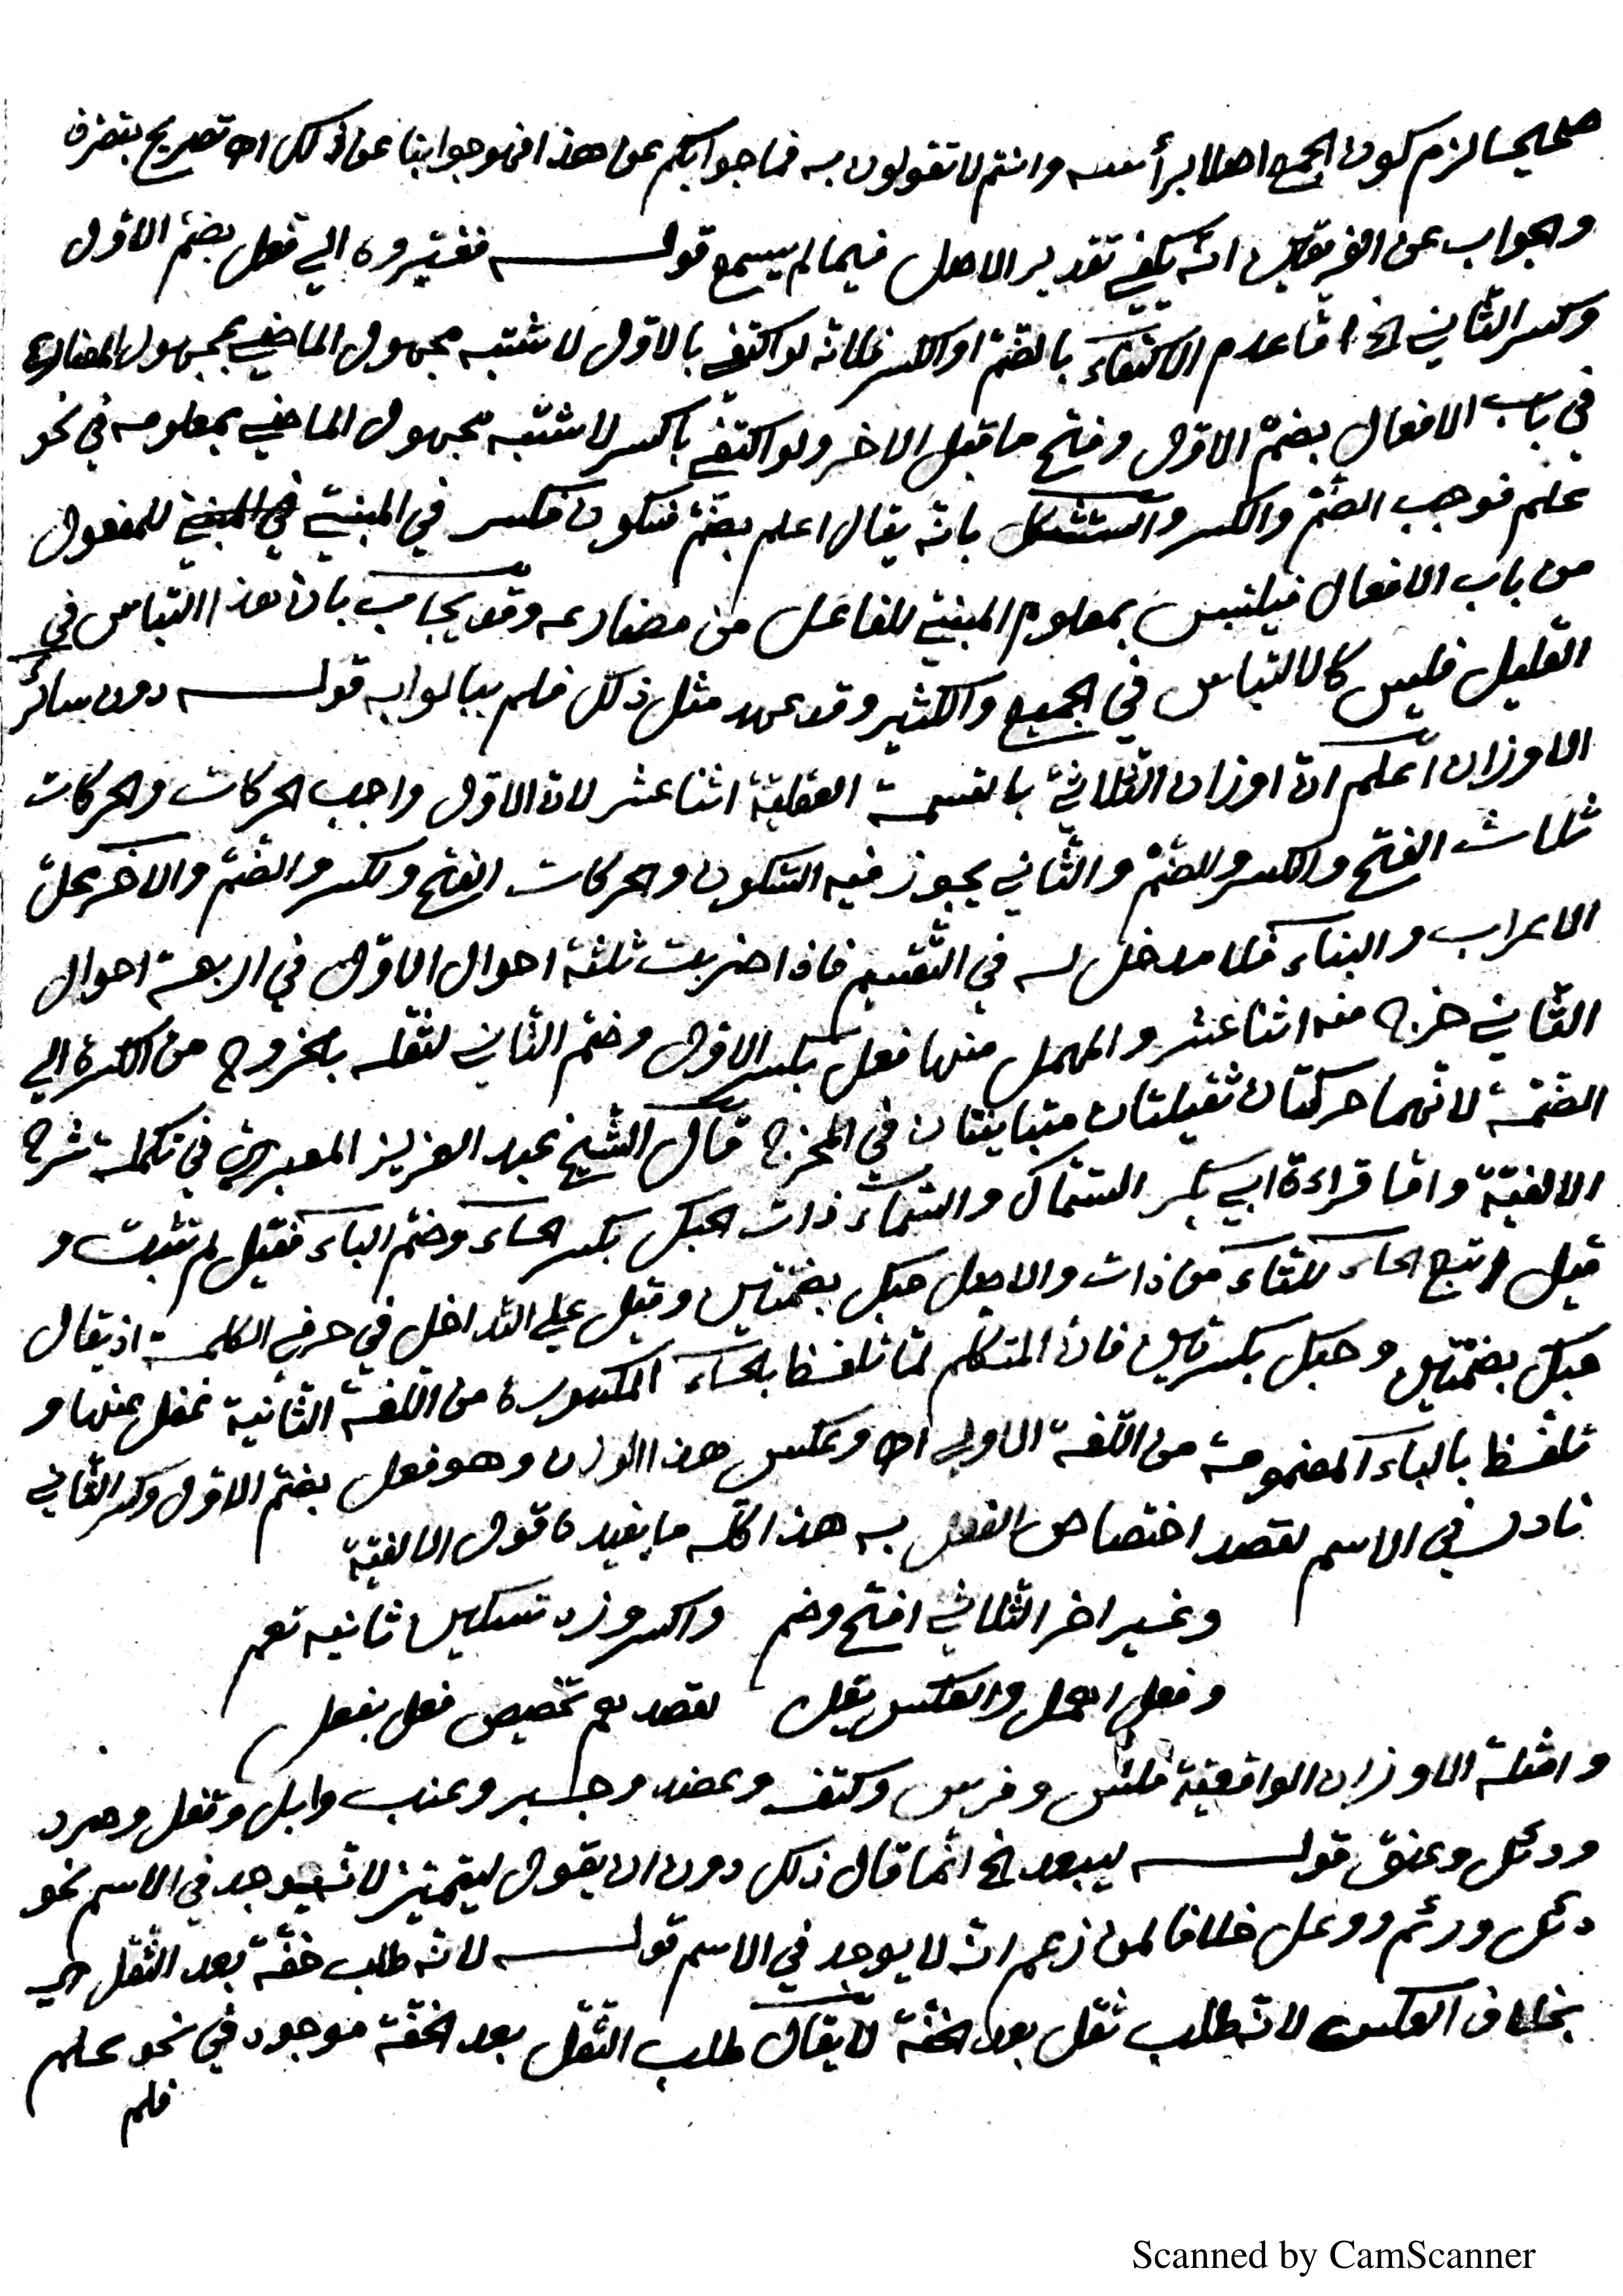 صحيحا لزم كون الجمع اصلا برأسه وانتم لا تقولون به فما جوابكم عن هذا فهو جوابنا عن ذلك اه تصريح بتصرف
والجواب عن الفريقين انه يكفي تقدير الاصل فيما لم يسمع قوله فغيروه الي فعل بضم الاول
وكسر الثاني الخ امّا عدم الاكتفاء بالضمّ او الكسر فلانه لو اكتفي بالاول لاشتبه مجهول الماضي بمجهول المضارع
في باب الافعال بضمّ الاول وفتح ما قبل الاخر ولو اكتفي بالكسر لاشتبه مجهول الماضي بمعلومه في نحو
علم فوجب الضمّ والكسر واستشكل بانه يقال اعلم بضمّ فسكون فكسر في المبني في المبني للمفعول
من باب الافعال فيلتبس بمعلوم المبني للفاعل من مضارعه وقد يجاب بان هذا التباس في
القليل فليس كالالتباس في الجميع والكثير وقد عهد مثل ذلك فلم يبالوا به قوله دون سائر
الاوزان اعلم انّ اوزان الثلاثيّ بالقسمة العقليّة اثنا عشر لان الاول واجب الحركات والحركات
ثلاث الفتح والكسر والضمّ والثاني يجوز فيه السّكون والحركات الفتح ولكسر والضمّ والاخر محلّ
الاعراب والبناء فلا مدخل له في التّقسيم فاذا ضربت ثلثة احوال الاول في اربعة احوال
الثّاني خرج منه اثنا عشر والمهمل منها فعل بكسر الاول وضم الثاني لثقله بالخروج من الكسرة الي
الضمّة لانّهما حركتان ثقيلتان متباينتان في المخرج قال الشيخ عبد العزيز المعبري في تكملة شرح
الالفيّة وامّا قراءة ابي بكر السّمال والسّماء ذات الحبك بكسر الحاء وضمّ الباء فقيل لم تثبت و
قيل اتبع الحاء للتاء من ذات والاصل حبك بضمّتين وقيل علي التداخل في حرفي الكلمة اذ يقال
حبك بضمّتين وحبك بكسرتين فان المتكلم لمّا تلفظ بالحاء المكسورة من اللّغة الثانية غفل عنها و
تلفّظ بالباء المضمومة من اللّغة الاولي اه وعكس هذا الوزن وهو فعل بضم الاول وكسر الثاني
نادر في الاسم لقصد اختصاص الفعل به هذا كلّه ما يفيده قول الالفيّة
وغير اخر الثلاثي افتح وضم واكسر وزد تسكين ثانيه تعم
وفعل اهمل والعكس يقل لقصدهم تخصيص فعل بفعل
وامثلة الاوزان الواقعيّة فلس وفرس وكتف وعضد وحبر وعنب وابل وقفل وصرد
ودئل وعنق قوله ليبعد الخ انّما قال ذلك دون ان يقول ليتميّز لانه يوجد في الاسم نحو
دئل ورئم ووعل خلافا لمن زعم انه لا يوجد في الاسم قوله لانه طلب خفّة بعد الثقل اي
بخلاف العكس لانه طلب ثقل بعد الخفّة لا يقال طلب الثّقل بعد الخفّة موجود في نحو علم
فلم
Scanned by CamScanner